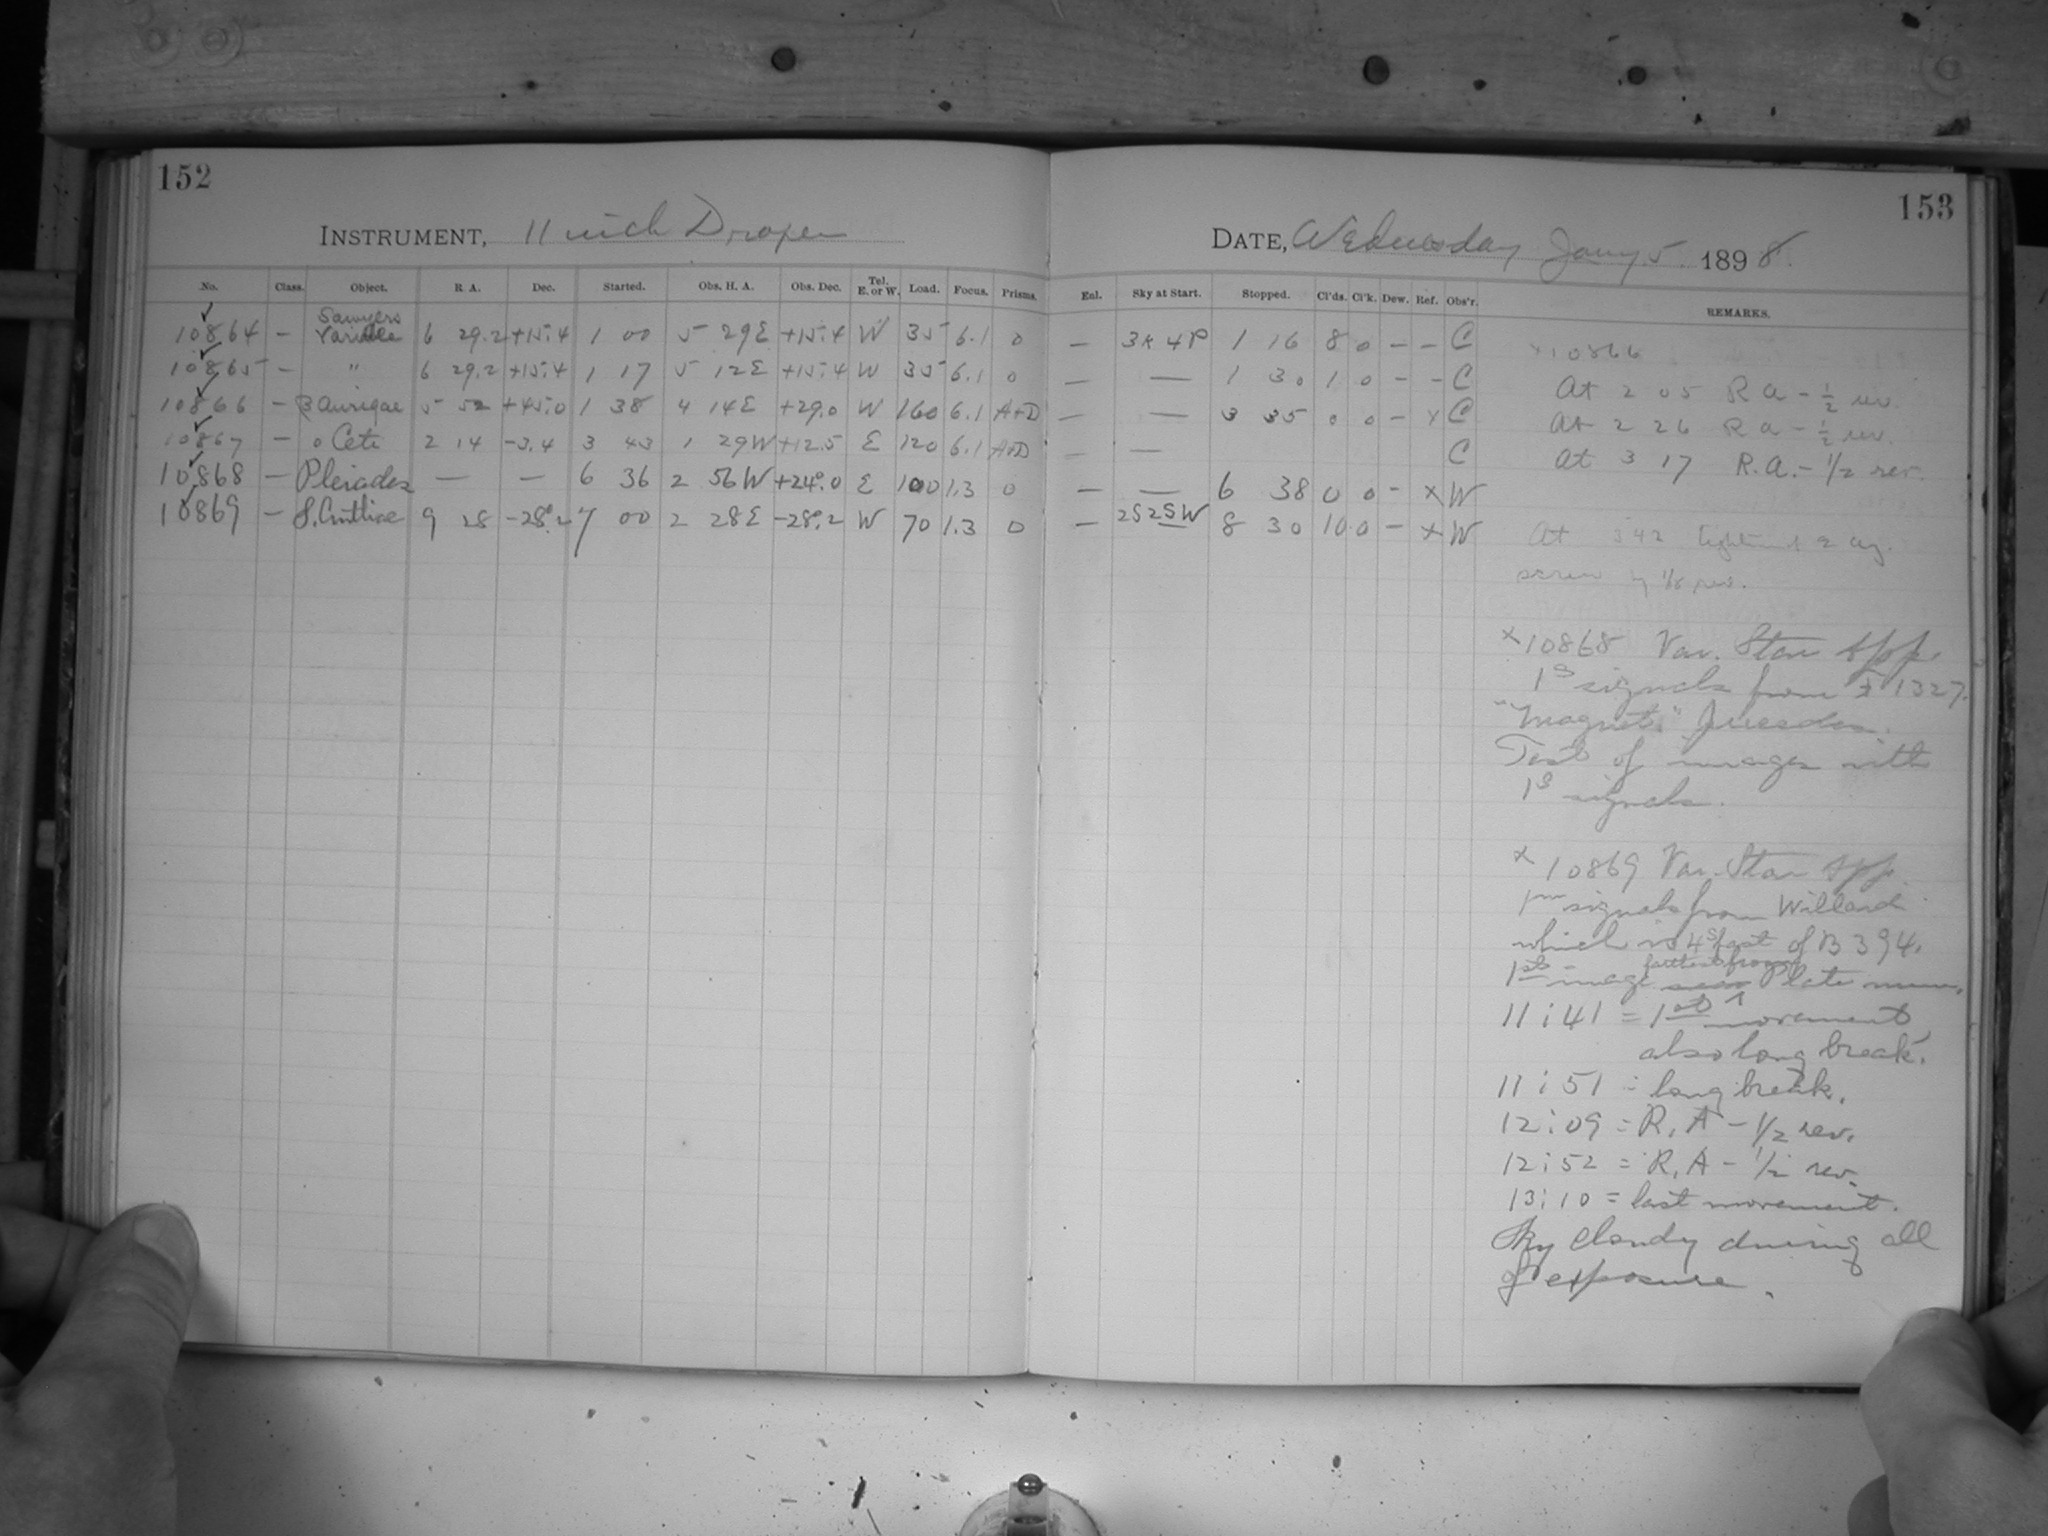 152
INSTRUMENT, 11 inch Draper
No. Class. Object. R. A. Dec. Started. Obs. H. A. Obs. Dec. Tel. E. or W. Load. Focus. Prisms.
10864 – Sawyers Variable 6 29.2 +15.4 1 00 5 29E +15.4 W 35 6.1 0
10865 – " 6 29.2 +15.4 1 17 5 12E +15.4 W 35 6.1 0
10866 – β Aurigae 5 52 +45.0 1 38 4 14E +29.0 W 160 6.1 A+D
10867 – o Ceti 2 14 -3.4 3 43 1 29W +12.5 E 120 6.1 A+D
10868 – Pleiades — — 6 36 2 56W +24°.0 E 100 1.3 0
10869 – S. Antliae 9 28 -28°.2 7 00 2 28E -28°.2 W 70 1.3 0
153
DATE, Wednesday Jany 5. 1898.
Enl. Sky at Start. Stopped. Cl'ds. Cl'k. Dew. Ref. Obs'r. REMARKS.
– 3R 4P 1 16 8 0 – – C
– — 1 30 1 0 – – C
– — 3 35 0 0 – x C
– — C
– — 6 38 0 0 – x W
– 2S2SW 8 30 10 0 – x W
x10866
At 2 05 R a – ½ rev.
At 2 26 R a – ½ rev.
At 3 17 R.A. – 1/2 rev.
At 342
screw 1/8 rev.
x10868 Var. Star App.
1s signals from 1327.
"Magnet."
Test of images with
1s signals.
x 10869 Var. Star App.
1m signals from Willard
which is 4s fast of B 394.
1st image farthest from Plate num.
11:41 = 1st movement
also long break.
11:51 = long break.
12:09 = R.A – 1/2 rev.
12:52 = R.A – 1/2 rev.
13:10 = last movement.
Sky Cloudy during all
of exposure.